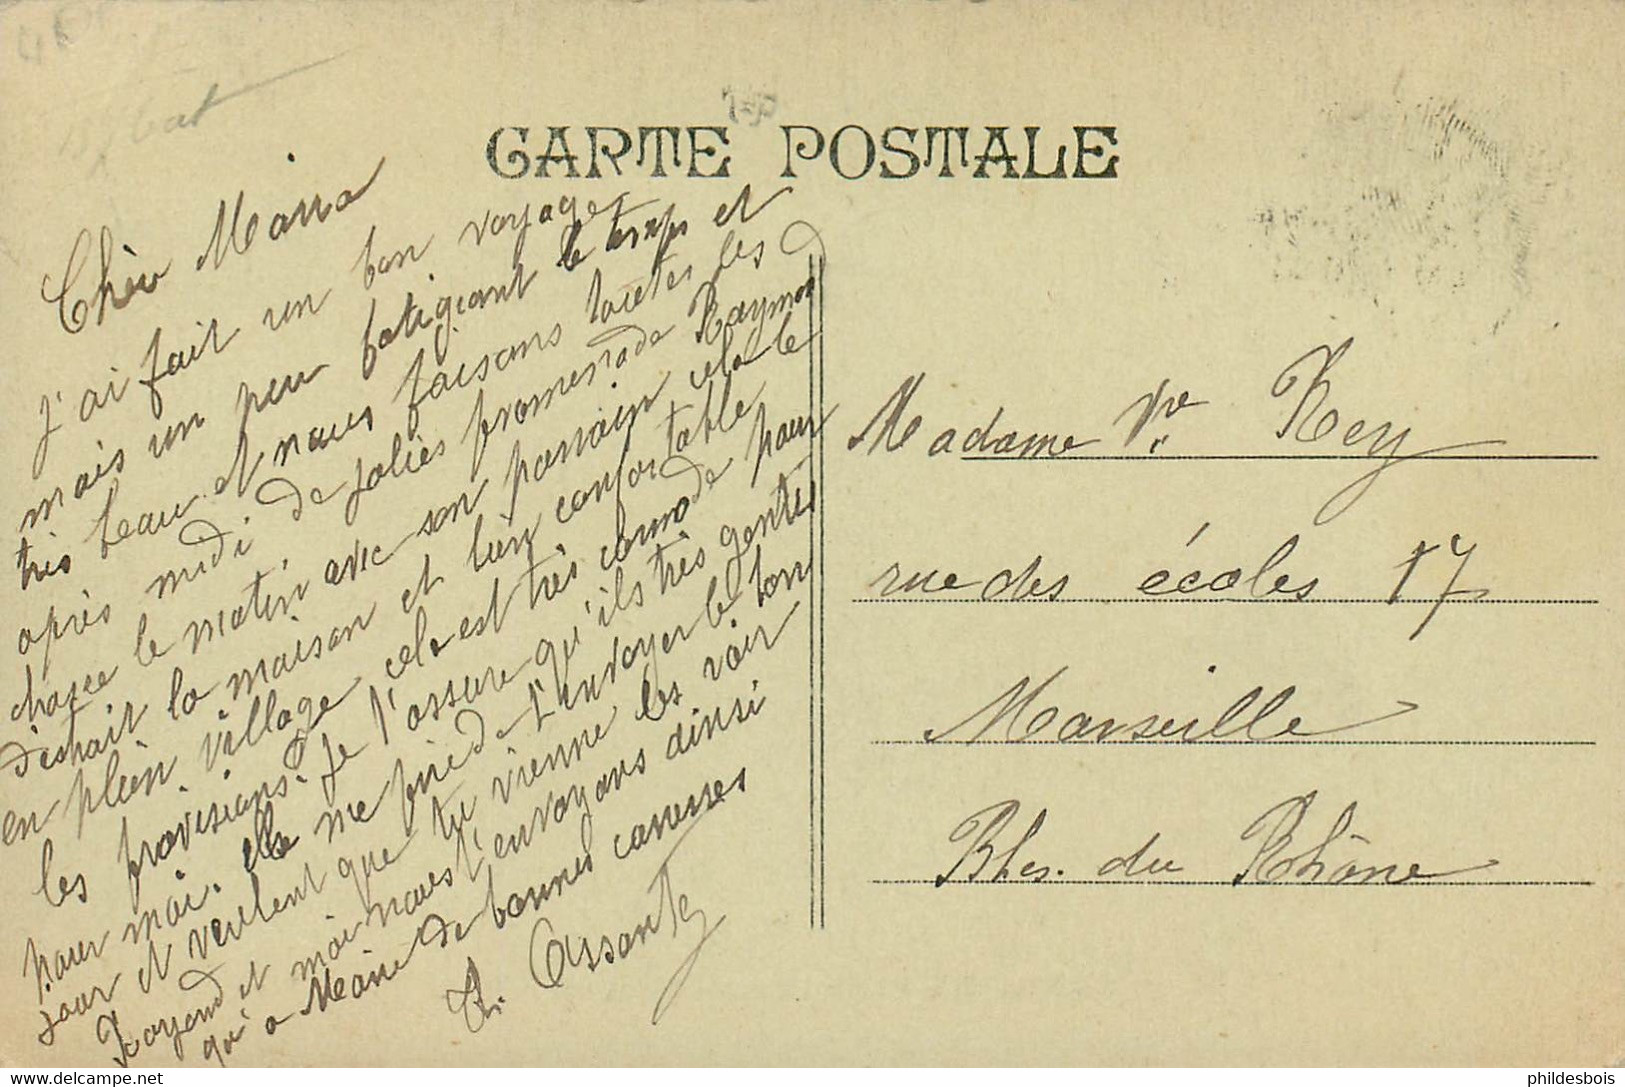 CARTE POSTALE
Chère Mana
j'ai fait un bon voyage
mais un peu fatigant le temps et
très beau et nous faisons toutes les
après midi de jolies promenade Raymond
chasse le matin avec son parrain cela le
distrait la maison et bien confortable
en plein village cela est très comode pour
les provisions. Je t'assure qu'ils très gentils
pour moi. elle me prie de t'envoyer le bon
jour et veulent que tu vienne les voir
et moi nous t'envoyons ainsi
qu'a Marie de bonnes caresses
R. Assante
Madame Vve Rey
rue des écoles 17
Marseille
Bhes. du Rhône
phildesbois